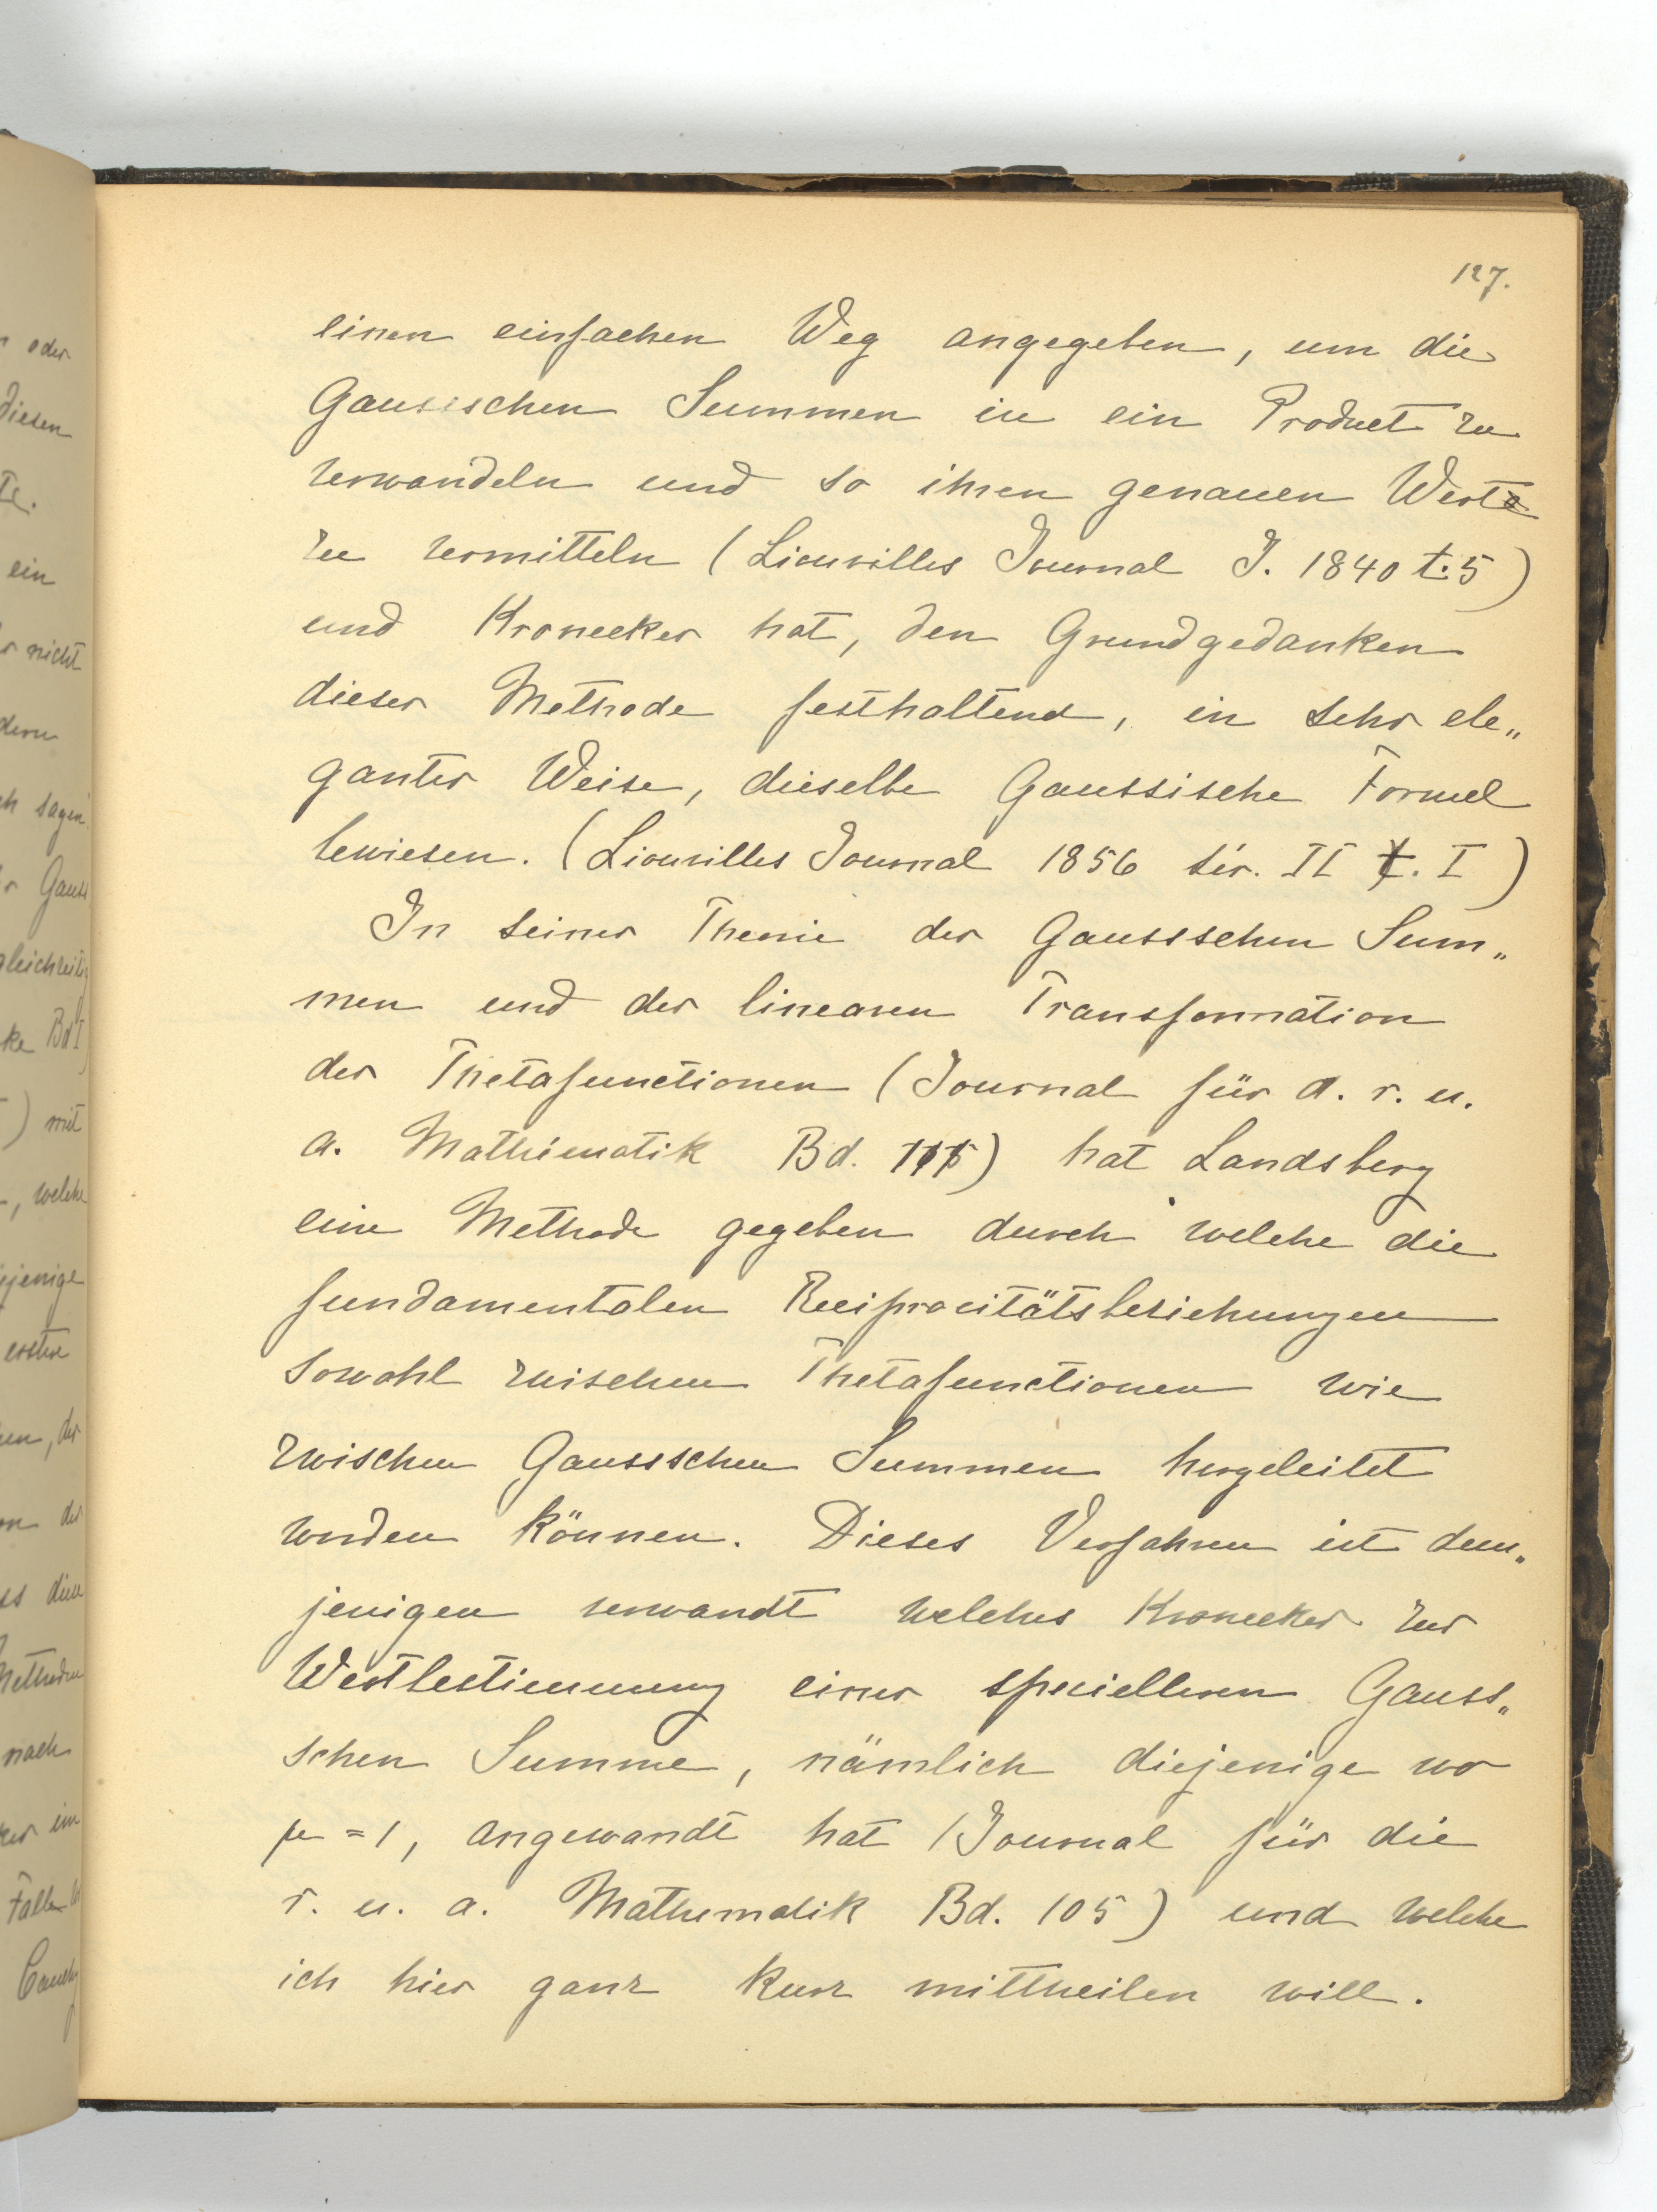 127.
einen einfachen Weg angegeben, um die
Gausischen Summen in ein Product zu
verwandeln und so ihren genauen Werte
zu vermitteln (Liouvilles Journal J. 1840 t. 5)
und Kronecker hat, den Grundgedanken
dieser Methode festhaltend, in sehr ele„
ganter Weise, dieselbe Gaussische Formel
bewiesen. (Liouvilles Journal 1856 sér. II t. I)
In seiner Theorie der Gaussschen Sum„
men und der linearen Transformation
der Thetafunctionen (Journal für d. r. u.
a. Mathematik Bd. 111) hat Landsberg
eine Methode gegeben durch welche die
fundamentalen Reciprocitätsbeziehungen
sowohl zwischen Thetafunctionen wie
zwischen Gaussschen Summen hergeleitet
werden können. Dieses Verfahren ist dem„
jenigen verwandt welches Kronecker zur
Wertbestimmung einer specielleren Gauss„
schen Summe, nämlich diejenige wo
μ = 1, angewandt hat (Journal für die
r. u. a. Mathematik Bd. 105) und welche
ich hier ganz kurz mittheilen will.
oder
diesen
ein
nicht
sagen
Gauss
gleichzeitig
Bd I
) mit
, welche
erstere
der
diese
Methoden
nach
Falle
Cauchy